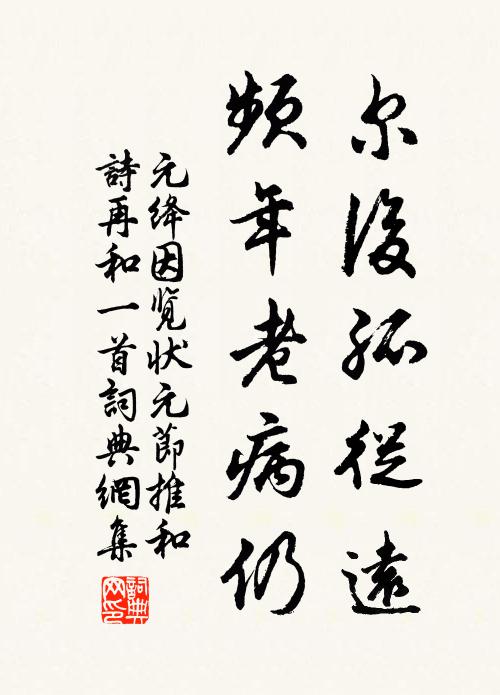 尔後孤從遠
頻年老病仍
元絳因覽狀元節推和
詩再和一首詞典網集
詞典網印